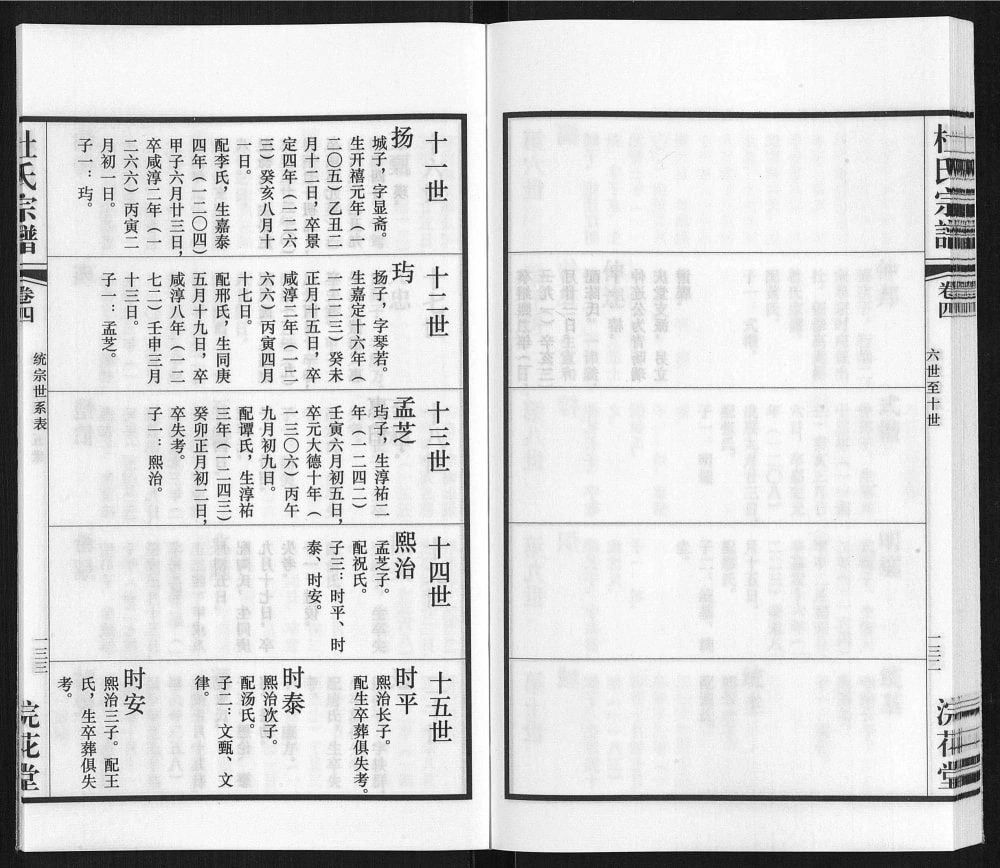 杜氏宗谱
卷四
六世至十世
一三二
浣花堂
十一世
扬
城子，字显斋。
生开禧元年（一
二〇五）乙丑二
月十三日，卒景
定四年（一二六
三）癸亥八月十
一日。
配李氏，生嘉泰
四年（一二〇四）
甲子六月廿三日，
卒咸淳二年（一
二六六）丙寅二
月初一日。
子一：玙。
十二世
玙
扬子，字琴若。
生嘉定十六年（
一二二三）癸未
正月十五日，卒
咸淳二年（一二
六六）丙寅四月
十七日。
配邢氏，生同庚
五月十九日，卒
咸淳八年（一二
七二）壬申三月
十三日。
子一：孟芝。
十三世
孟芝
玙子，生淳祐二
年（一二四二）
壬寅六月初五日，
卒元大德十年（
一三〇六）丙午
九月初九日。
配谭氏，生淳祐
三年（一二四三）
癸卯正月初二日，
卒失考。
子一：熙治。
十四世
熙治
孟芝子。
配祝氏。
子三：时平、时
泰、时安。
十五世
时平
熙治长子。
配生卒葬俱失考。
时泰
熙治次子。
配汤氏。
子二：文甄、文
律。
时安
熙治三子。配王
氏，生卒葬俱失
考。
杜氏宗谱
卷四
统宗世系表
一三三
浣花堂